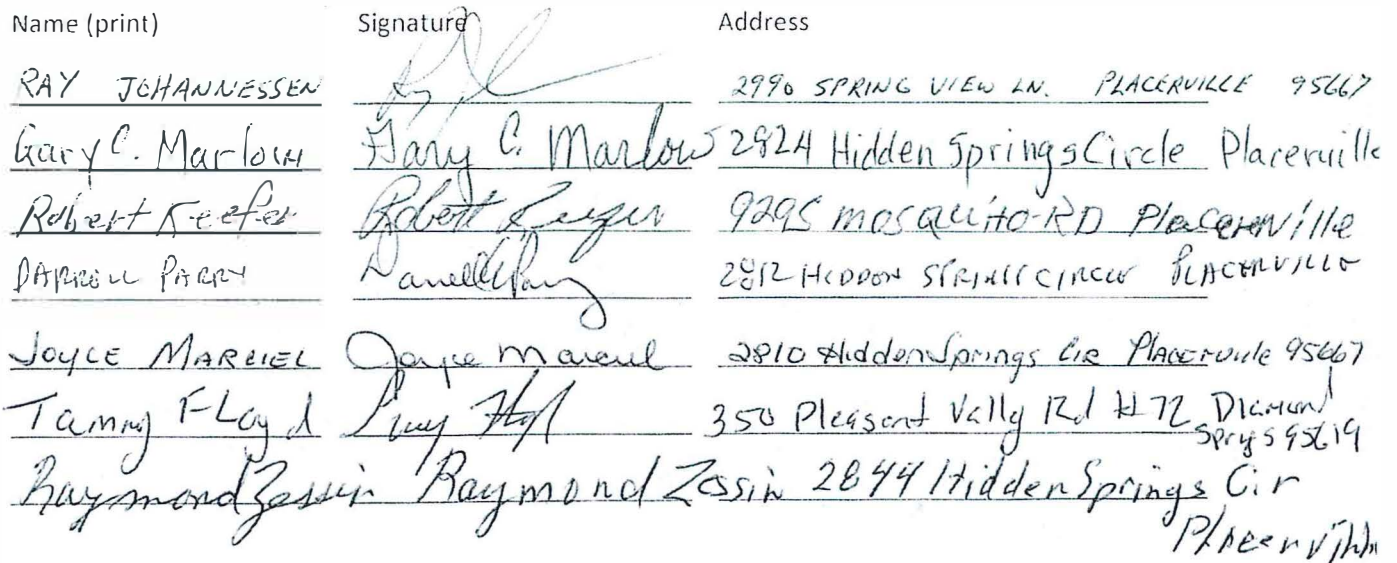 Name (print) Signature Address
RAY JOHANNESSEN 2990 SPRING VIEW LN. PLACERVILLE 95667
Gary C. Marlow Gary C. Marlow 2824 Hidden Springs Circle Placerville
Robert Keefer Robert Keefer 9295 MOSQUITO RD Placerville
DARRELL PARRY 2812 HIDDON SPRINGS CIRCLE PLACERVILLE
JOYCE MARCIEL Joyce Marciel 2810 Hidden Springs Cir Placerville 95667
Tammy FLoyd 350 Pleasant Vally Rd #72 Diamond
Sprgs 95619
Raymond Zessin Raymond Zessin 2844 Hidden Springs Cir
Placerville